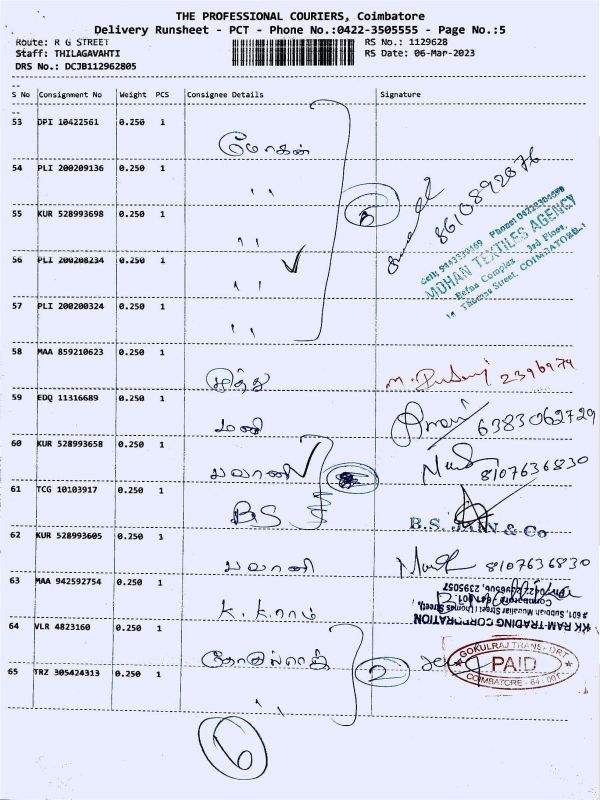 THE PROFESSIONAL COURIERS, Coimbatore
Delivery Runsheet - PCT - Phone No.:0422-3505555 - Page No.:5
Route: R G STREET RS No.: 1129628
Staff: THILAGAVAHTI RS Date: 06-Mar-2023
DRS No.: DCJB112962805
S No Consignment No Weight PCS Consignee Details Signature
53 DPI 10422561 0.250 1
மோகன்
54 PLI 200209136 0.250 1
" 5 8610892076
55 KUR 528993698 0.250 1
"
Cell: Phone:
MOHAN TEXTILES AGENCY
Complex 3rd Floor,
Thomas Street, COIMBATORE-1
56 PLI 200208234 0.250 1
"
57 PLI 200200324 0.250 1
"
58 MAA 859210623 0.250 1
முத்து 2396974
59 EDQ 11316689 0.250 1
மணி 6383062729
60 KUR 528993658 0.250 1
பவானி 8107636830
61 TCG 10103917 0.250 1
BS
B.S. JAIN & Co
62 KUR 528993605 0.250 1
பவானி 8107636830
63 MAA 942592754 0.250 1
K.K ராம்
KK RAM TRADING CORPORATION
64 VLR 4823160 0.250 1
கோகுல்ராஜ் 2
GOKULRAJ TRANSPORT
PAID
COIMBATORE - 641 001
65 TRZ 305424313 0.250 1
"
6